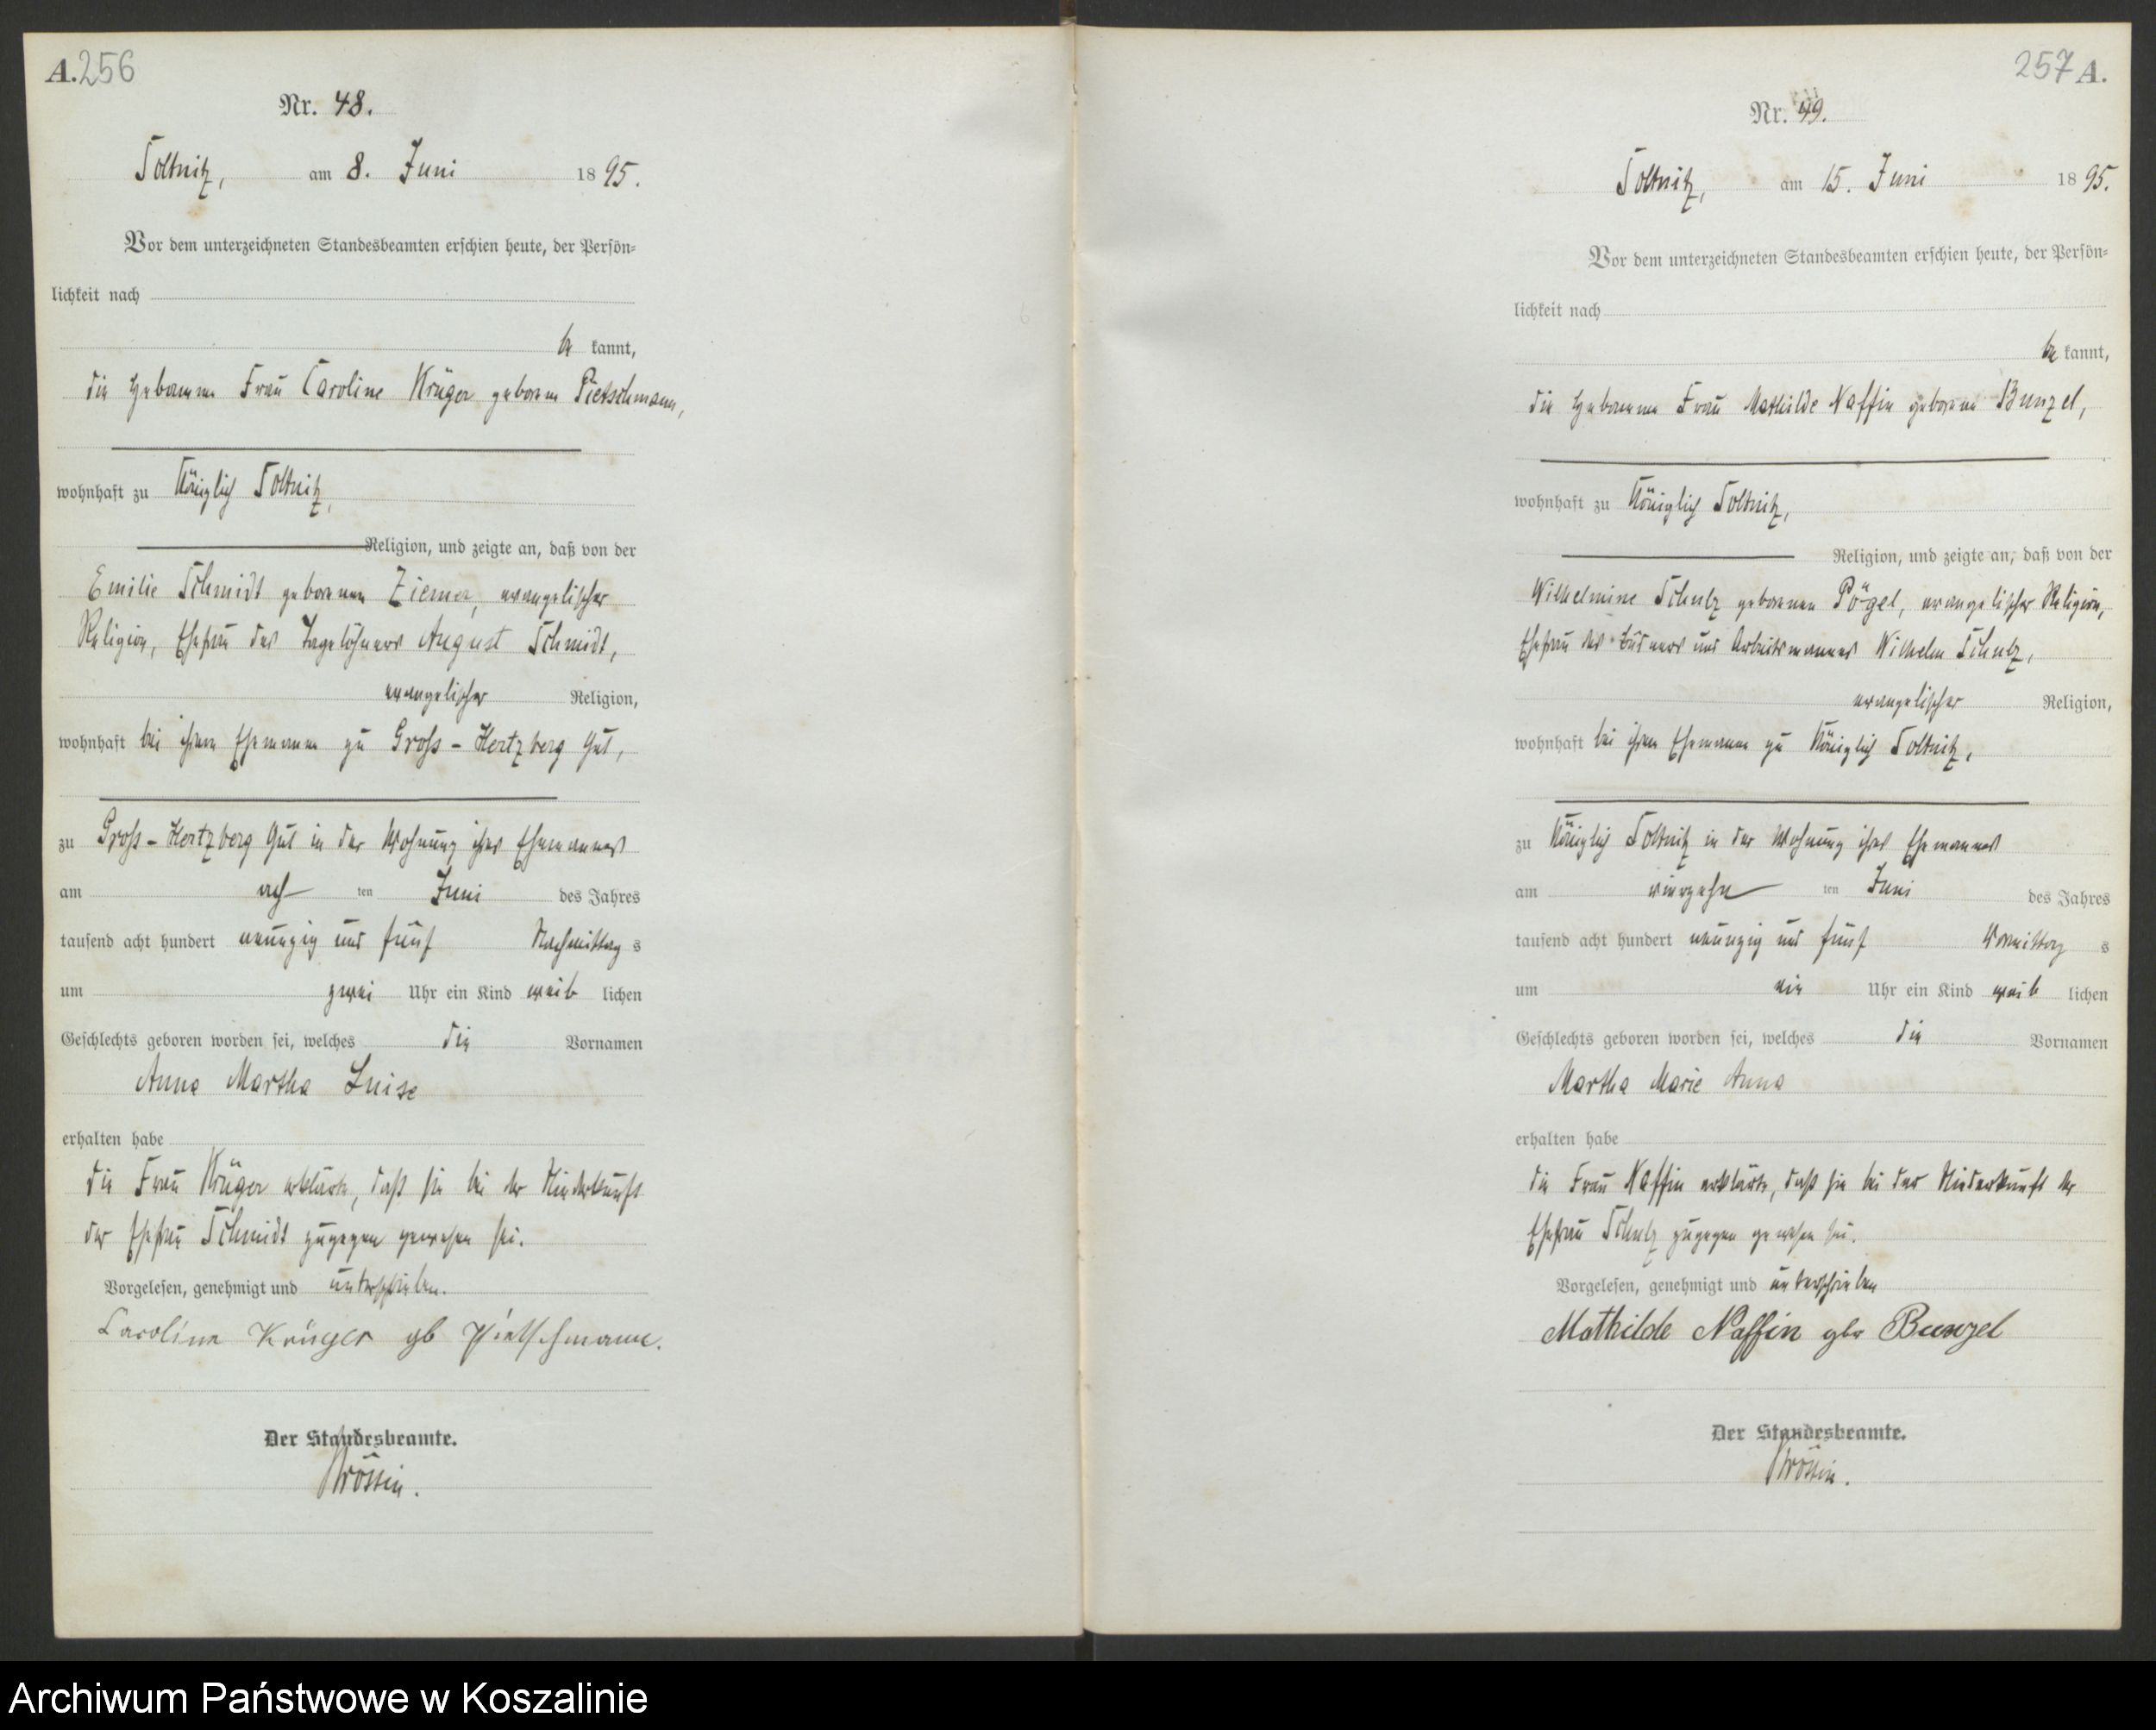 A. 256
Nr. 48.
Soltnitz, am 8. Juni 1895.
Vor dem unterzeichneten Standesbeamten erschien heute, der Persön-
lichkeit nach
be kannt,
die Hebamme Frau Caroline Krüger geborene Pietschmann,
wohnhaft zu Königlich Soltnitz,
Religion, und zeigte an, daß von der
Emilie Schmidt geborenen Ziemer, evangelischer
Religion, Ehefrau des Tagelöhners August Schmidt,
evangelischer Religion,
wohnhaft bei ihrem Ehemanne zu Gross-Hertzberg Gut,
zu Gross-Hertzberg Gut in der Wohnung ihres Ehemannes
am ach ten Juni des Jahres
tausend acht hundert neunzig und fünf Nachmittag s
um zwei Uhr ein Kind weib lichen
Geschlechts geboren worden sei, welches die Vornamen
Anna Martha Luise
erhalten habe
die Frau Krüger erklärte, daß sie bei der Niederkunft
der Ehefrau Schmidt zugegen gewesen sei.
Vorgelesen, genehmigt und unterschrieben.
Caroline Krüger gb Pietschmann.
Der Standesbeamte.
257 A.
Nr. 49.
Soltnitz, am 15. Juni 1895.
Vor dem unterzeichneten Standesbeamten erschien heute, der Persön-
lichkeit nach
be kannt,
die Hebamme Frau Mathilde Naffin geborene Bunzel,
wohnhaft zu Königlich Soltnitz,
Religion, und zeigte an, daß von der
Wilhelmine Schulz geborenen Pögel, evangelischer Religion,
Ehefrau des Büdners und Arbeitsmannes Wilhelm Schulz,
evangelischer Religion,
wohnhaft bei ihrem Ehemanne zu Königlich Soltnitz,
zu Königlich Soltnitz in der Wohnung ihres Ehemannes
am vierzehn ten Juni des Jahres
tausend acht hundert neunzig und fünf Vormittag s
um ein Uhr ein Kind weib lichen
Geschlechts geboren worden sei, welches die Vornamen
Martha Marie Anna
erhalten habe
die Frau Naffin erklärte, daß sie bei der Niederkunft der
Ehefrau Schulz zugegen gewesen sei.
Vorgelesen, genehmigt und unterschrieben
Mathilde Naffin gbr Bunzel
Der Standesbeamte.
Archiwum Państwowe w Koszalinie